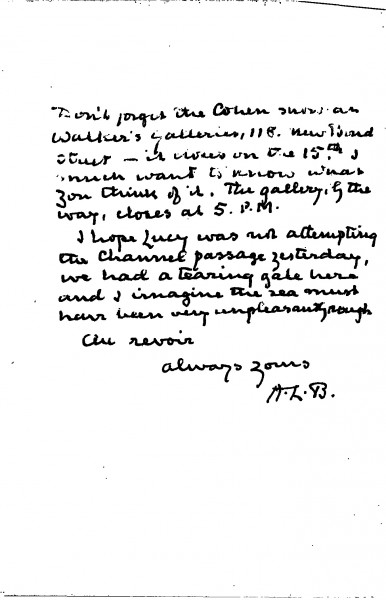 Don't forget the Cohen show at
Walker's galleries, 118. New Bond
Street – it closes on the 15th. I
much want to know what
you think of it. The gallery, by the
way, closes at 5. P.M.
I hope Lucy was not attempting
the Channel passage yesterday,
we had a tearing gale here
and I imagine the sea must
have been very unpleasantly rough
Au revoir
always yours
A.L.B.